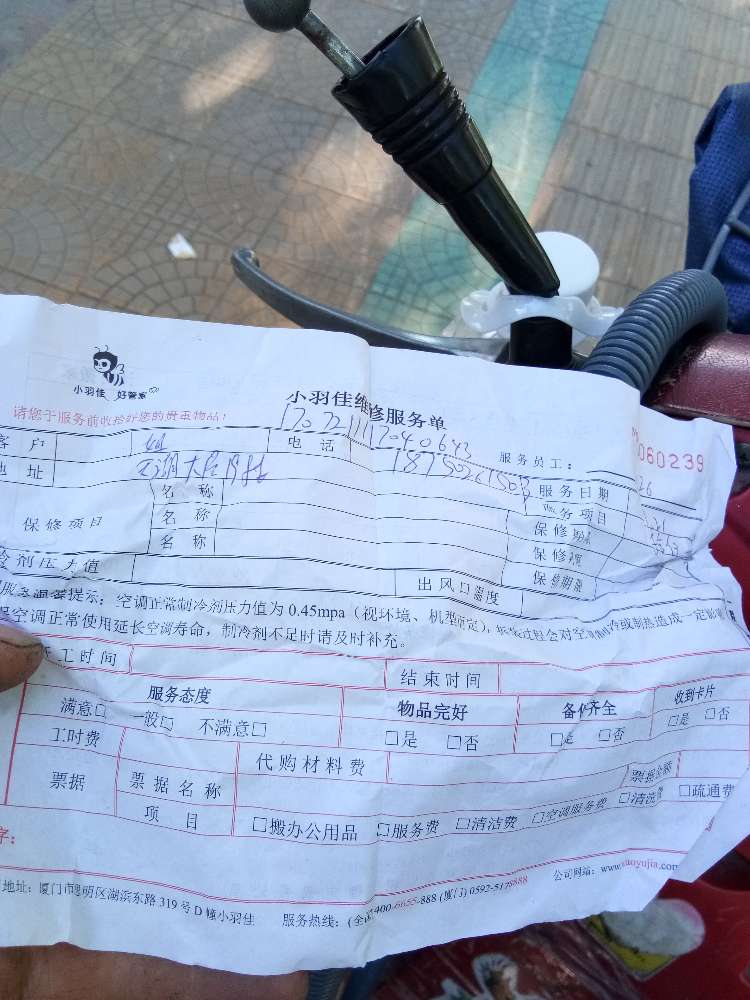 小羽佳 好管家
小羽佳维修服务单
请您于服务前收拾好您的贵重物品!
060239
170721117040643
客户
电话
服务员工:
地址
服务日期
26
名称
服务项目
保修项目
名称
保修
名称
保修
冷剂压力值
出风口温度
保修期限
提示:空调正常制冷剂压力值为0.45mpa(视环境、机型而定),
空调正常使用延长空调寿命,制冷剂不足时请及时补充。
开工时间
结束时间
服务态度
物品完好
备件齐全
收到卡片
满意□ 一般□ 不满意□
□是 □否
□是 □否
□是 □否
工时费
代购材料费
票据
票据名称
票据金额
项目
□搬办公用品 □服务费 □清洁费 □空调服务费 □清洗费 □疏通费
字:
地址:厦门市思明区湖滨东路319号D幢小羽佳
服务热线:(全国)400-6655-888 (厦门) 0592-5178888
公司网站:www.xiaoyujia.com